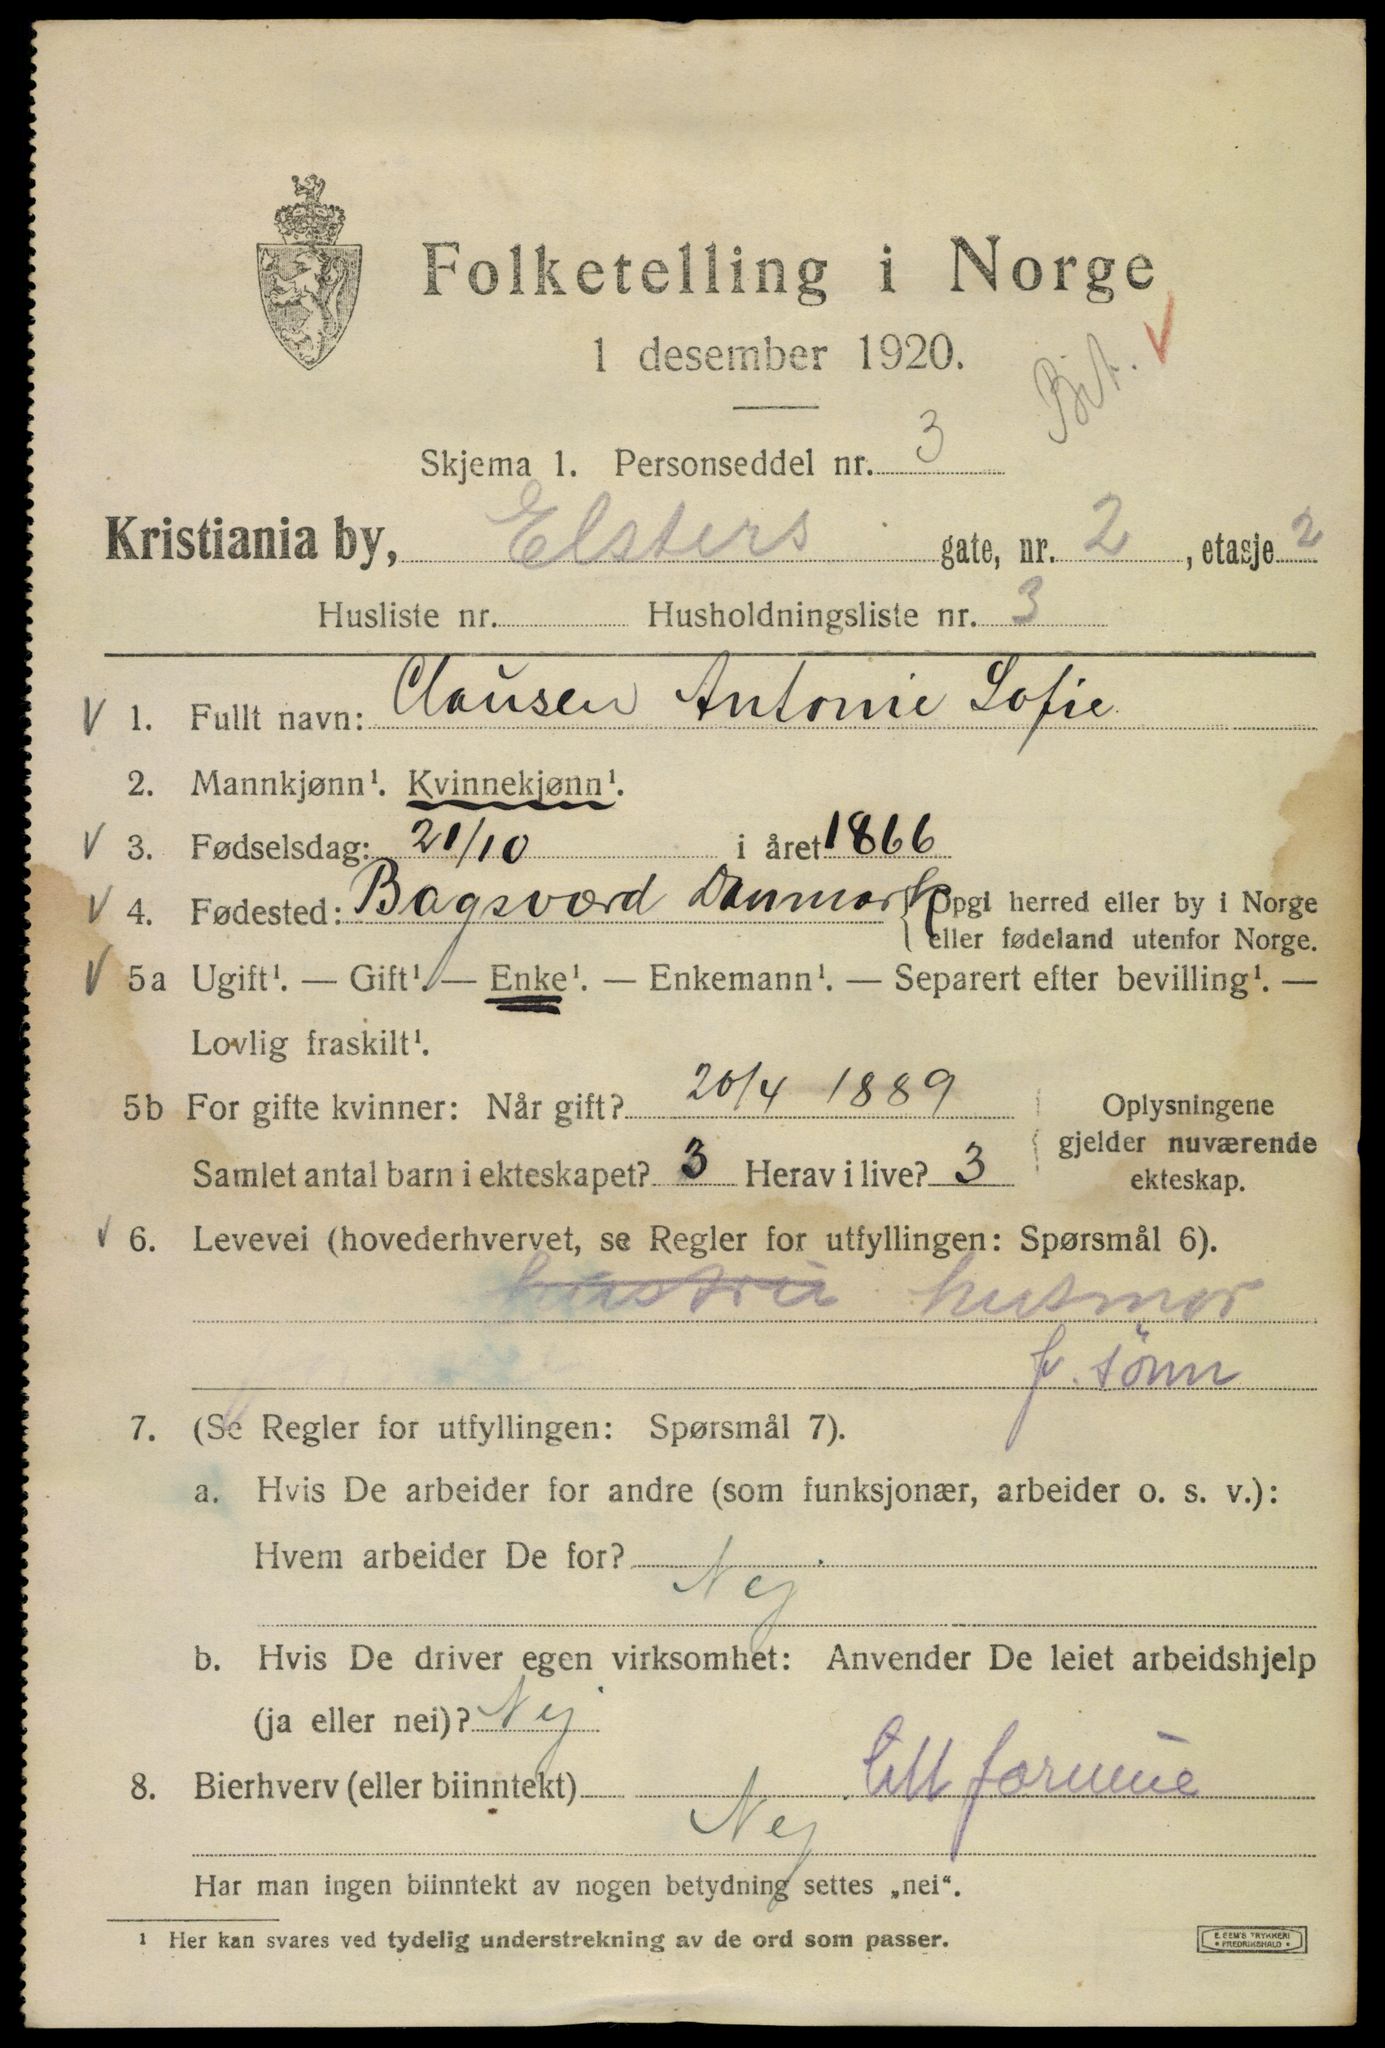 Folketelling i Norge
1 desember 1920.
Bit.
Skjema 1. Personseddel nr. 3
Kristiania by, Elsters gate, nr. 2, etasje 2
Husliste nr. Husholdningsliste nr. 3
1. Fullt navn: Clausen Antonie Sofie
2. Mannkjønn¹. Kvinnekjønn¹.
3. Fødselsdag: 21/10 i året 1866
4. Fødested: Bagsværd Danmark { Opgi herred eller by i Norge
eller fødeland utenfor Norge.
5a Ugift¹. — Gift¹. — Enke¹. — Enkemann¹. — Separert efter bevilling¹. —
Lovlig fraskilt¹.
5b For gifte kvinner: Når gift? 20/4 1889
Samlet antal barn i ekteskapet? 3 Herav i live? 3
Oplysningene
gjelder nuværende
ekteskap.
6. Levevei (hovederhvervet, se Regler for utfyllingen: Spørsmål 6).
hustru husmor
f. sønn
7. (Se Regler for utfyllingen: Spørsmål 7).
a. Hvis De arbeider for andre (som funksjonær, arbeider o. s. v.):
Hvem arbeider De for? Nej
b. Hvis De driver egen virksomhet: Anvender De leiet arbeidshjelp
(ja eller nei)? Nej
8. Bierhverv (eller biinntekt) litt formue
Nej
Har man ingen biinntekt av nogen betydning settes „nei".
¹ Her kan svares ved tydelig understrekning av de ord som passer.
E. SEM'S TRYKKERI
• FREDRIKSHALD •